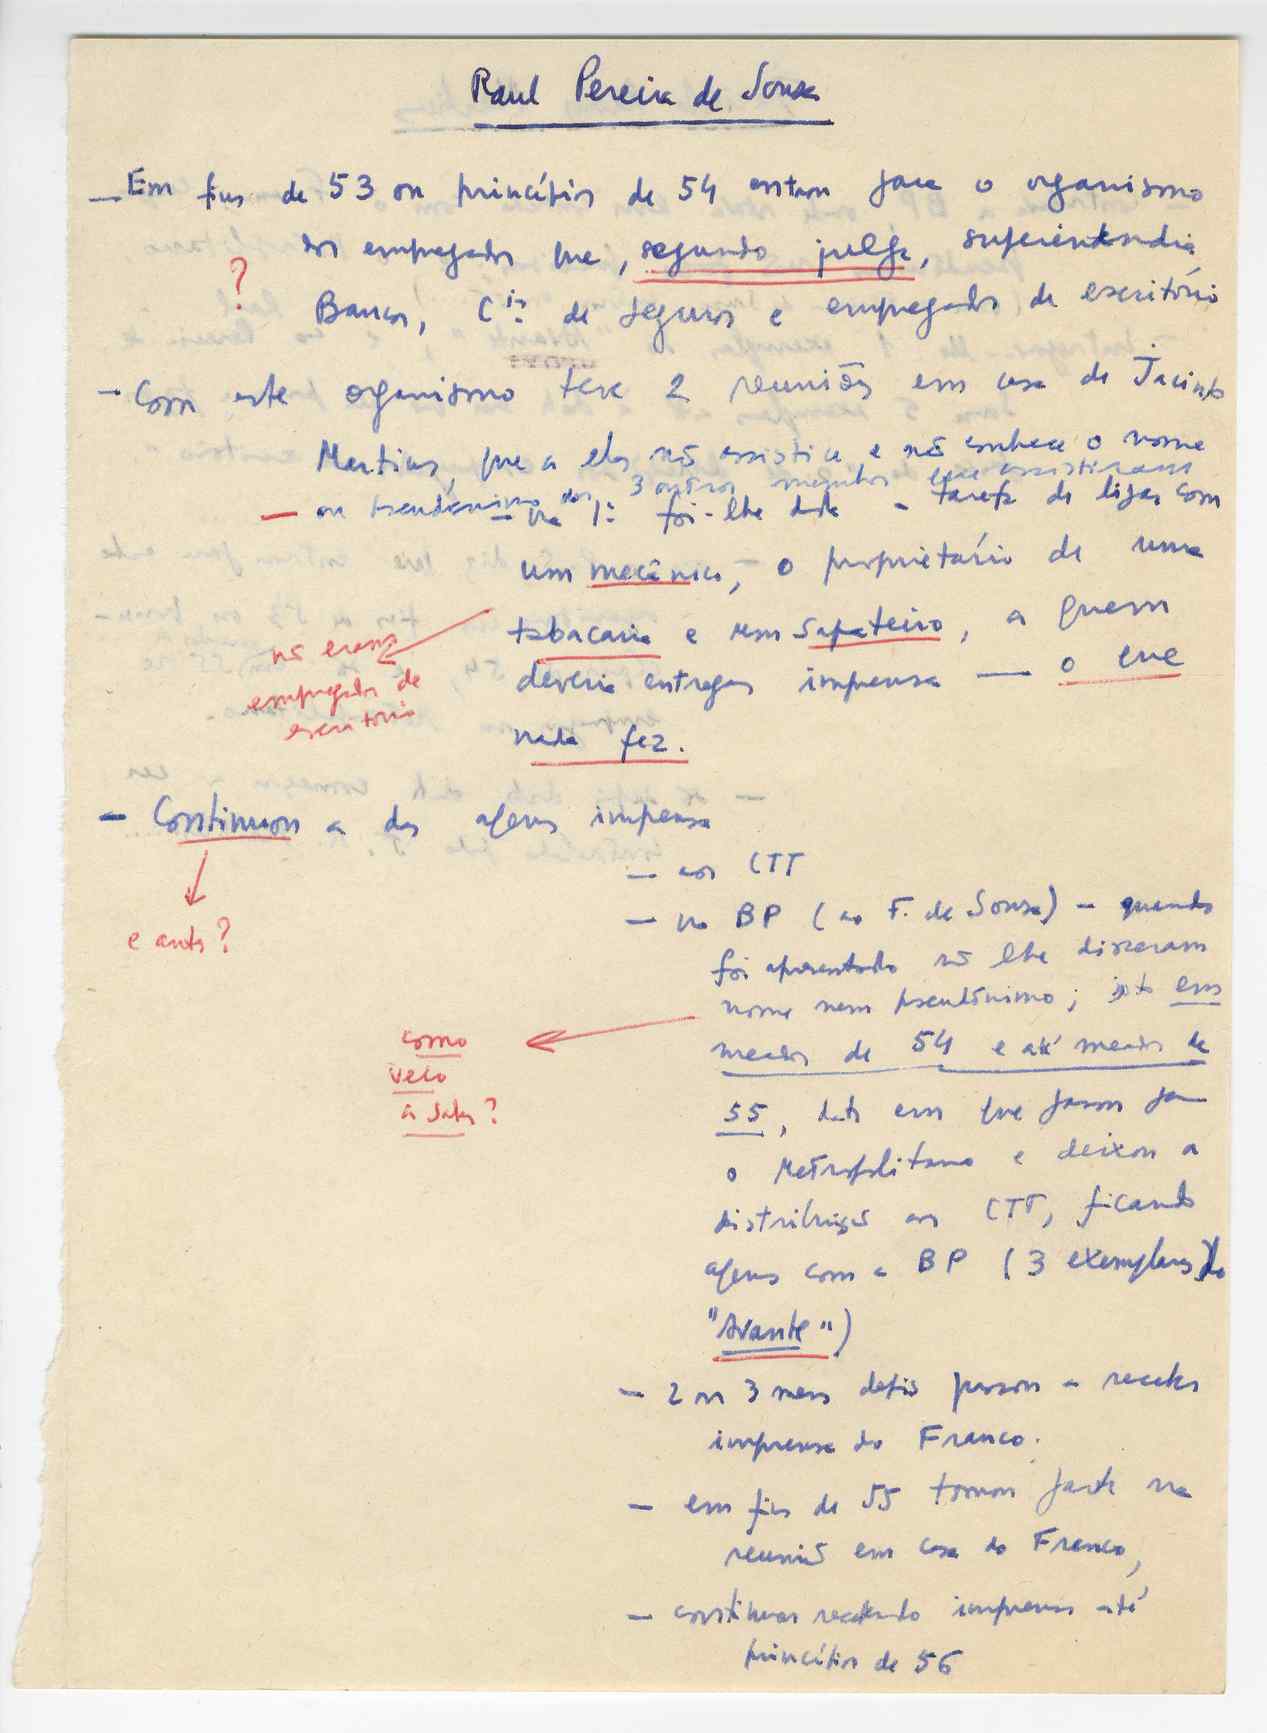 Raul Pereira de Sousa
— Em fins de 53 ou princípios de 54 entrou para o organismo
dos empregados que, segundo julga, superintendia
?
Bancos, Cias de Seguros e empregados de escritório
— Com este organismo teve 2 reuniões em casa de Jacinto
Martins, que a elas não assistiu e não conhece o nome
ou pseudónimo dos 3 outros membros que assistiram
— na 1ª foi-lhe dada a tarefa de ligar com
um mecânico, o proprietário de uma
tabacaria e um sapateiro, a quem
não eram
empregados de
escritório
deveria entregar imprensa — o que
nada fez.
— Continuou a dar apenas imprensa
e antes?
— aos CTT
— no BP (ao F. de Sousa) — quando
foi apresentado não lhe disseram
nome nem pseudónimo; isto em
como
veio
a saber?
meados de 54 e até meados de
55, data em que passou para
o Metropolitano e deixou a
distribuição aos CTT, ficando
apenas com a BP (3 exemplares do
"Avante")
— 2 ou 3 meses depois passou a receber
imprensa do Franco.
— em fins de 55 tomou parte na
reunião em casa do Franco,
— continuou recebendo imprensa até
princípios de 56